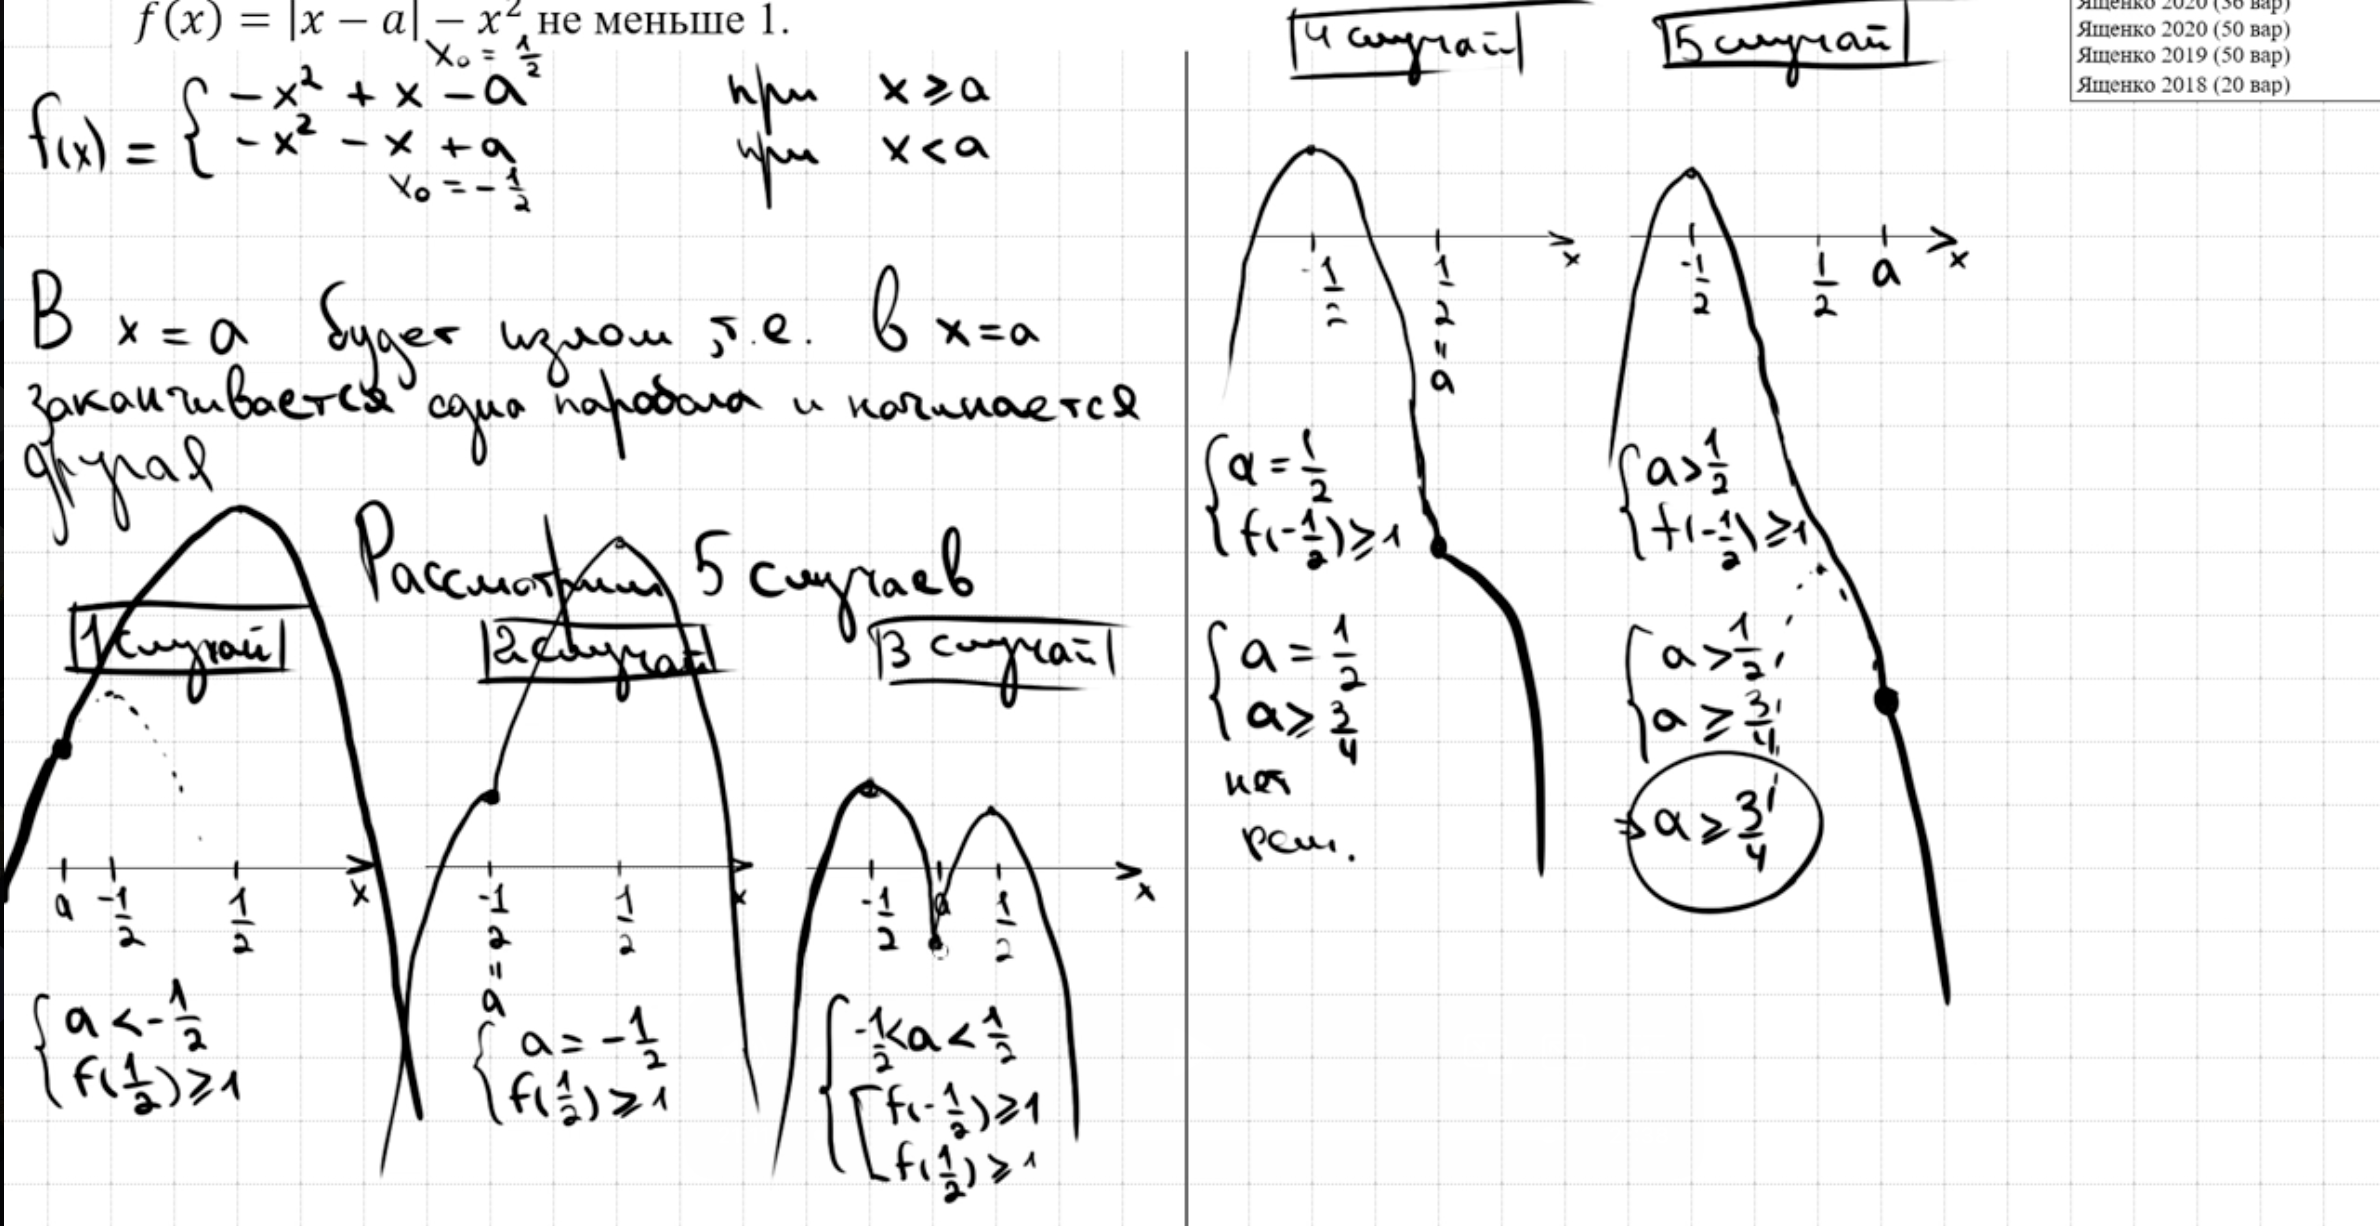 f(x) = |x − a| − x² не меньше 1.
x₀ = 1/2
f(x) = { −x² + x − a при x ⩾ a
−x² − x + a при x < a
x₀ = −1/2
В x = a будет излом, т.е. в x = a
заканчивается одна парабола и начинается
другая
Рассмотрим 5 случаев
1 случай
a −1/2 1/2 x
{ a < −1/2
f(1/2) ⩾ 1
2 случай
−1/2 = a 1/2 x
{ a = −1/2
f(1/2) ⩾ 1
3 случай
−1/2 a 1/2 x
{ −1/2 < a < 1/2
[ f(−1/2) ⩾ 1
f(1/2) ⩾ 1
4 случай
−1/2 1/2 = a x
{ a = 1/2
f(−1/2) ⩾ 1
{ a = 1/2
a ⩾ 3/4
нет
реш.
5 случай
−1/2 1/2 a x
{ a > 1/2
f(−1/2) ⩾ 1
{ a > 1/2
a ⩾ 3/4
⇒ a ⩾ 3/4
Ященко 2020 (36 вар)
Ященко 2020 (50 вар)
Ященко 2019 (50 вар)
Ященко 2018 (20 вар)